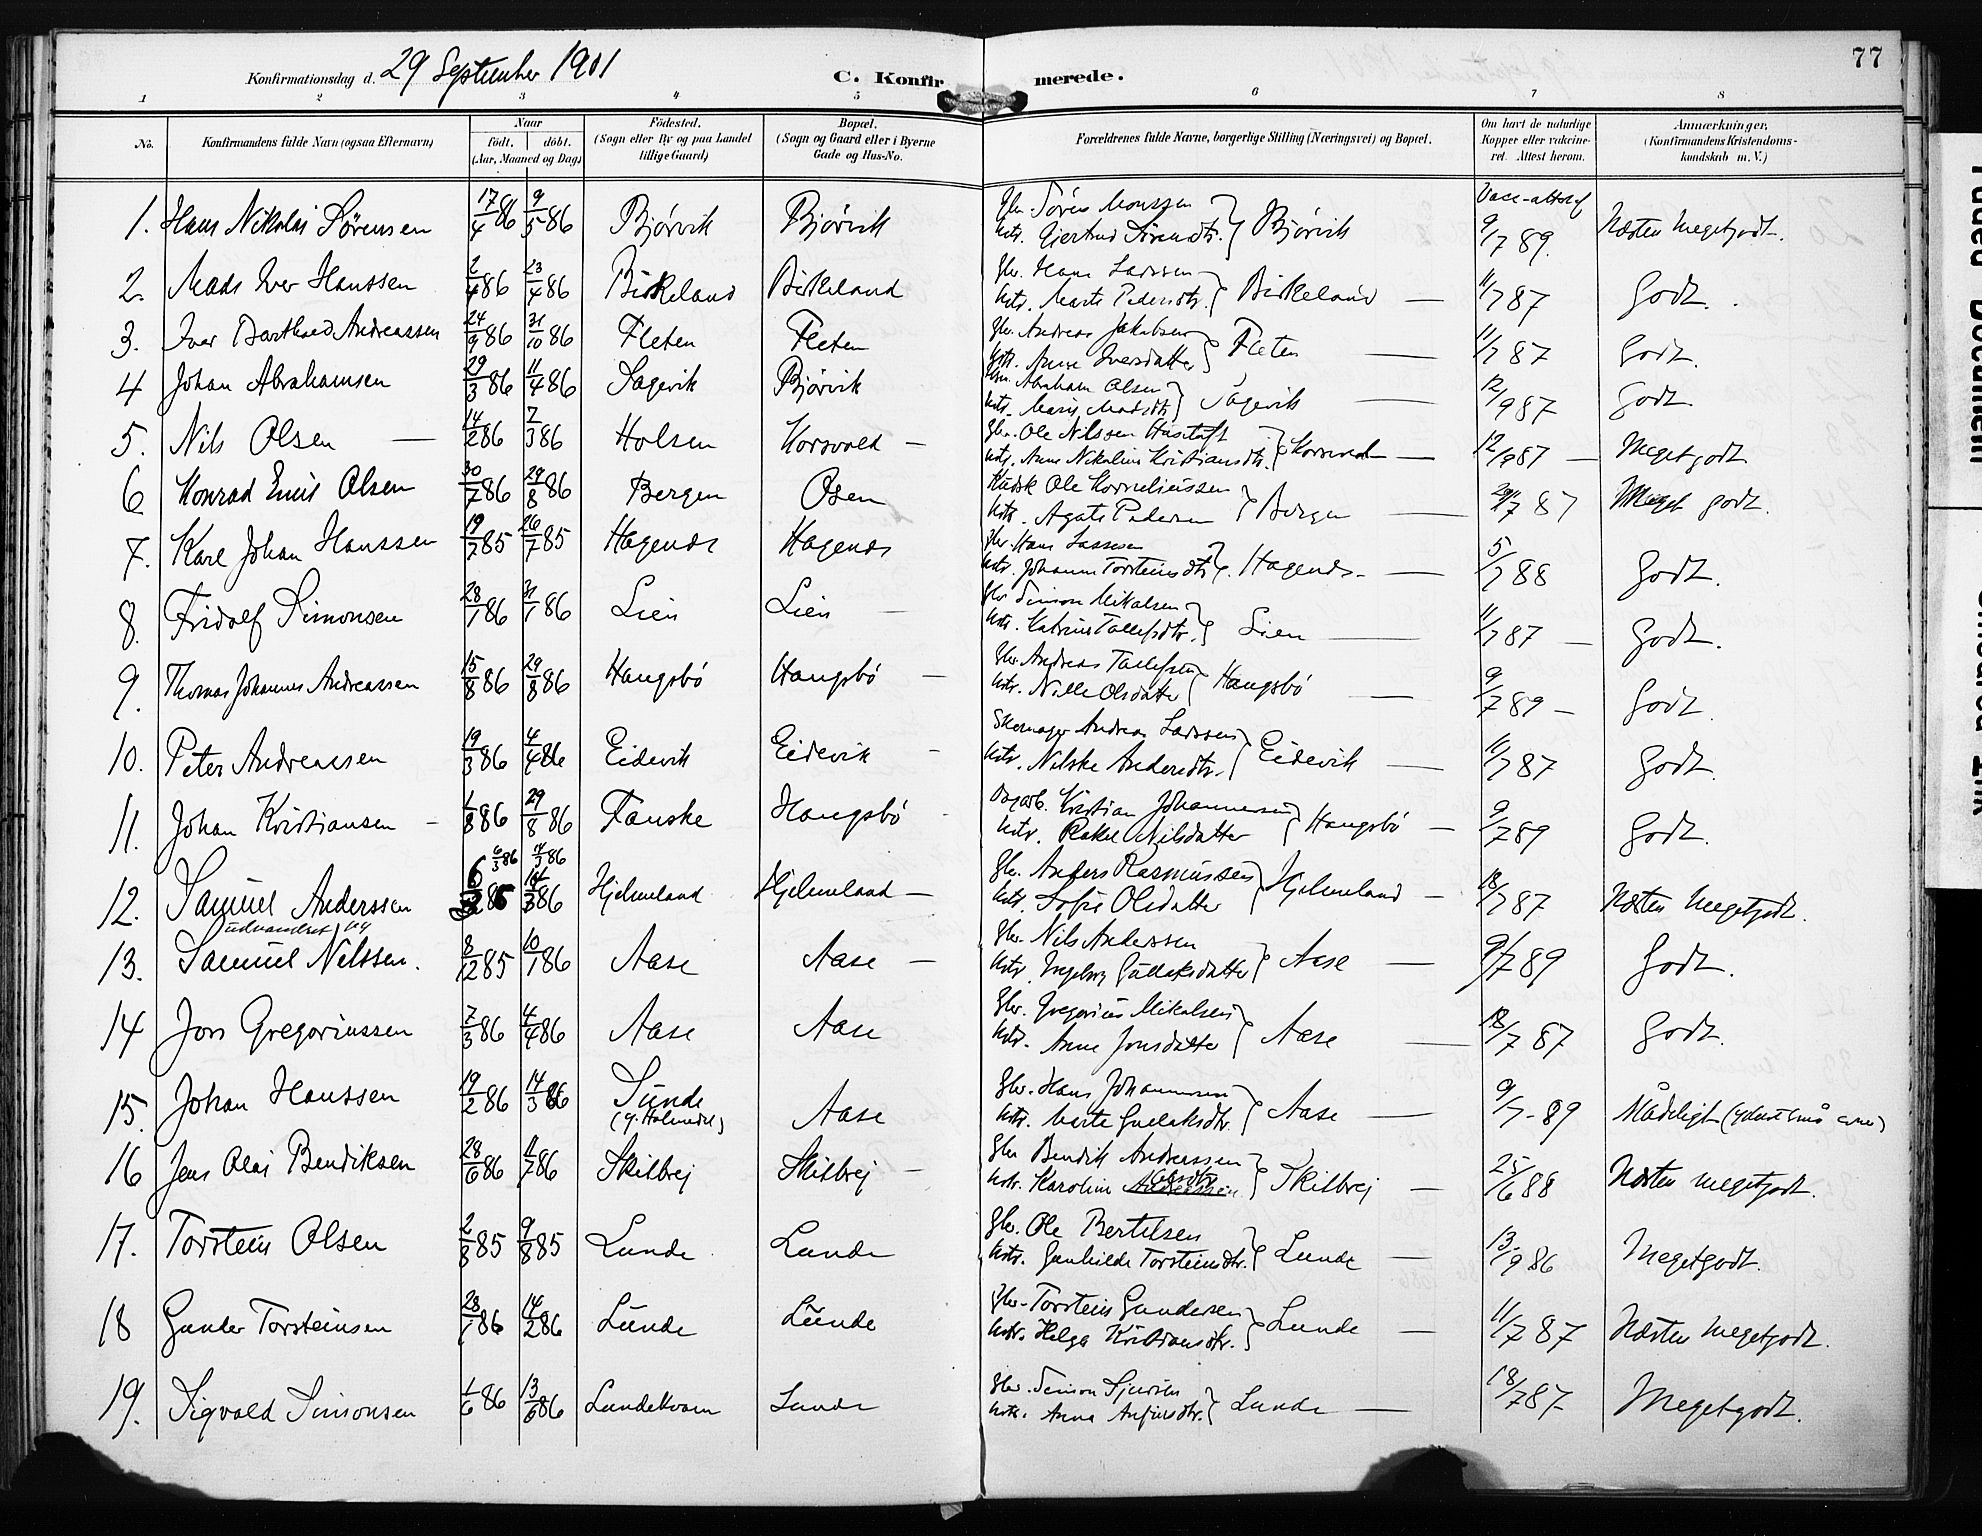 77
Konfirmationsdag d. 29 September 1901
C. Konfirmerede.
1 2 3 4 5 6 7 8
No. Konfirmandens fulde Navn (ogsaa Efternavn) Naar født, døbt. (Aar, Maaned og Dag) Fødested. (Sogn eller By og paa Landet tillige Gaard) Bopæl. (Sogn og Gaard eller i Byerne Gade og Hus-No. Forældrenes fulde Navne, borgerlige Stilling (Næringsvei) og Bopæl. Om havt de naturlige Kopper eller vakcineret. Attest herom. Anmærkninger. (Konfirmandens Kristendomskundskab m. V.)
1. Hans Nikolai Sørensen 17/4 86 9/5 86 Bjørvik Bjørvik Gbr. Søren Monssen Kstr. Gjertrud Sørensdtr. } Bjørvik Vacc-attest 9/7 89. Næsten Megetgodt.
2. Mads Iver Hanssen 2/4 86 23/4 86 Birkeland Birkeland Gbr. Hans Larssen Kstr. Marte Pedersdtr. } Birkeland — 11/7 87 Godt.
3. Ivar Barthold Andreassen 24/9 86 31/10 86 Fleten Fleten Gbr. Andreas Jakobsen Kstr. Anne Iversdatter } Fleten — 11/7 87 Godt.
4 Johan Abrahamsen 29/3 86 11/4 86 Sagevik Bjørvik Abraham Olsen Kstr. Maris Madsdtr } Sagevik — 12/9 87 Godt.
5. Nils Olsen — 14/2 86 7/3 86 Holsen Korsvold — Gbr. Ole Nilssen Kstr. Anne Nikoline Kristiansdtr. } Korsvold — 12/9 87 — Megetgodt
6 Konrad Emil Olsen 30/7 86 29/8 86 Bergen Osen Ole Korneliussen Kstr. Agate Pedersen } Bergen — 29/7 87 Meget godt.
7. Karl Johan Hanssen 19/7 85 26/7 85 Hagenes Hagenes Gbr. Hans Lassesen Kstr. Johanne Torsteinsdtr } Hagenes — 5/7 88 Godt.
8. Fridolf Simonsen 28/1 86 31/1 86 Lien Lien — Gbr Simon Mikalsen Kstr. Katrine Tollefsdtr. } Lien — 11/7 87 — Godt.
9. Thomas Johannes Andreassen 15/8 86 29/8 86 Haugsbø Haugsbø — Gbr Andreas Tollefsen Kstr. Nille Olsdatter } Haugsbø — 9/7 89 — Godt.
10. Peter Andreassen 19/3 86 4/4 86 Eidevik Eidevik — Skomager Andreas Larssen Kstr. Nilske Andersdtr. } Eidevik — 11/7 87 Godt.
11. Johan Kristiansen — 1/8 86 29/8 86 Fauske Haugsbø Dagarb. Kristian Johannessen Kstr. Rakel Nilsdatter } Haugsbø — 9/7 89 Godt.
6/3 86 14/3 86
12. Samuel Anderssen 14/3 86 Hjelmeland Hjelmeland — Gbr. Anders Rasmussen Kstr. Sofie Olsdatter } Hjelmeland — 18/7 87 Næsten Megetgodt.
udvandret
13. Samuel Nilssen. 8/12 85 10/1 86 Aase Aase — Gbr. Nils Anderssen Kstr. Ingeborg Gullaksdatter } Aase — 9/7 89 Godt.
14 Jon Gregoriussen 7/3 86 4/4 86 Aase Aase Gbr. Gregorius Mikalsen Kstr. Anne Jonsdatter } Aase — 18/7 87 Godt.
15. Johan Hanssen 19/2 86 14/3 86 Sunde (y. Holmedal) Aase Gbr. Hans Johannessen Kstr. Marte Gullaksdtr. } Aase — 9/7 - 89 Mådeligt (ydmt små evner)
16 Jens Olai Bendiksen 28/6 86 11/7 86 Skilbrej Skilbrej — Gbr Bendik Andreassen Kstr. Karoline Olsdtr. } Skilbrej — 25/6 88 Næsten megetgodt.
17. Torstein Olsen 2/8 85 9/8 85 Lunde Lunde Gbr. Ole Bertelsen Kstr. Gunhilde Torsteinsdtr. } Lunde — 13/9 86 Megetgodt.
18 Gunder Torsteinsen 28/1 86 14/2 86 Lunde Lunde Gbr. Torstein Gundersen Kstr. Helga Kristiansdtr. } Lunde — 11/7 87 Næsten megetgodt.
19. Sigvald Simonsen 1/6 86 13/6 86 Lundekvam Lunde Gbr. Simon Sjursen Kstr. Anna Anfinsdtr. } Lunde — 18/7 87- Megetgodt.